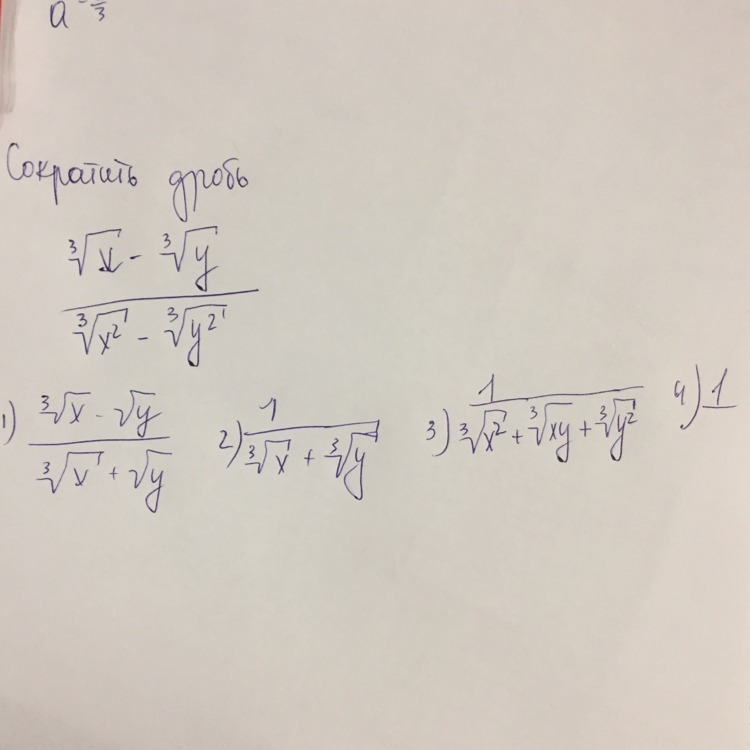 a^{-\frac{}{3}}
Сократить дробь
\frac{\sqrt[3]{x} - \sqrt[3]{y}}{\sqrt[3]{x^2} - \sqrt[3]{y^2}}
1) \frac{\sqrt[3]{x} - \sqrt{y}}{\sqrt[3]{x} + \sqrt{y}} 2) \frac{1}{\sqrt[3]{x} + \sqrt[3]{y}} 3) \frac{1}{\sqrt[3]{x^2} + \sqrt[3]{xy} + \sqrt[3]{y^2}} 4) 1